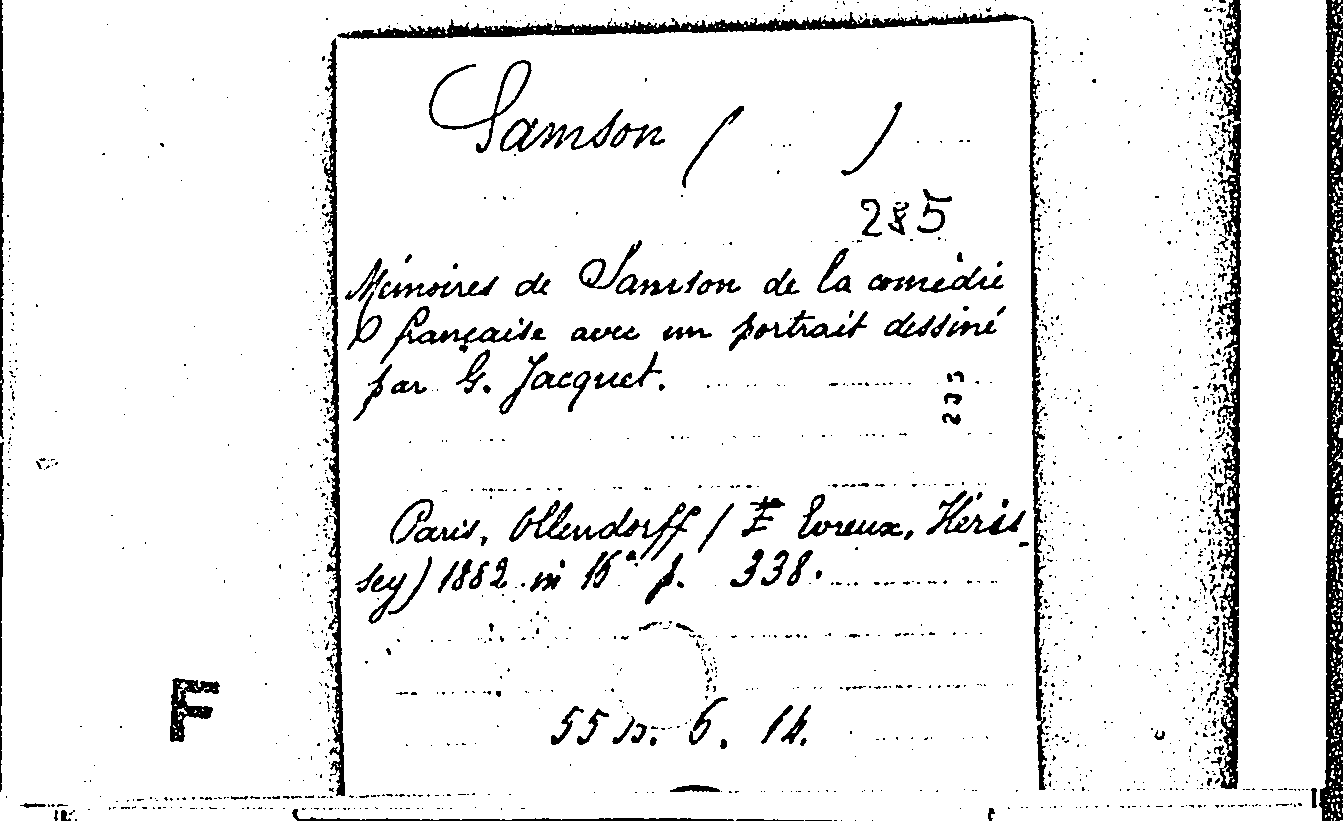 Samson ( )
285
Mémoires de Samson de la comédie
française avec un portrait dessiné
par G. Jacquet.
Paris, Ollendorff / Evreux, Héris-
sey) 1882 in 16° p. 338.
F
55 6. 14.